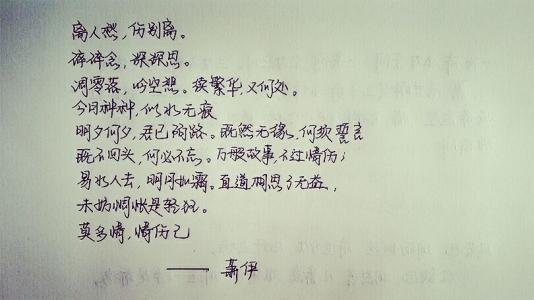 离人愁，伤别离。
碎碎念，深深思。
凋零落，吟空想。续繁华又何处。
今月种种，似水无痕
明夕何夕，君已陌路。既然无缘，何须誓言
既不回头，何必不忘。万般故事，不过情伤；
易水人去，明月如霜。直道相思了无益，
未妨惆怅是轻狂。
莫多情，情伤己
—— 萧伊